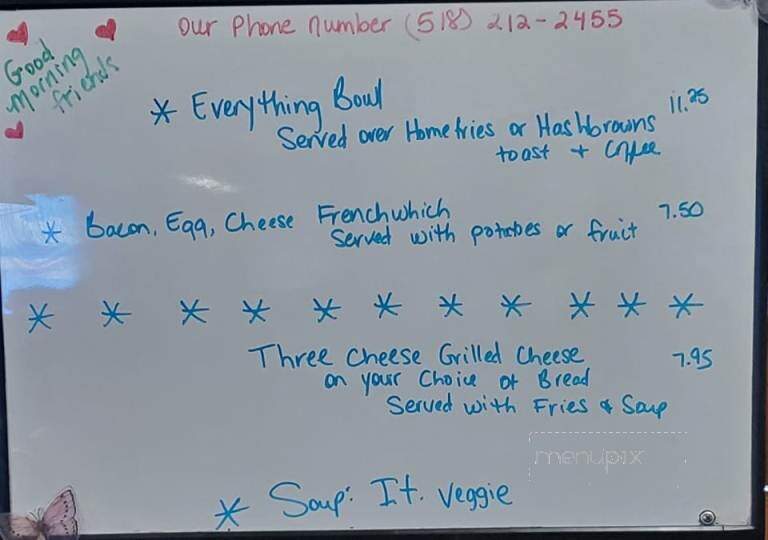 Our Phone number (518) 212-2455
Good
morning
friends
* Everything Bowl 11.25
Served over Homefries or Hashbrowns
toast + Coffee
* Bacon, Egg, Cheese Frenchwhich 7.50
Served with potatoes or fruit
* * * * * * * * * * *
Three Cheese Grilled Cheese 7.95
on your Choice of Bread
Served with Fries & Soup
menupix
* Soup: It. Veggie